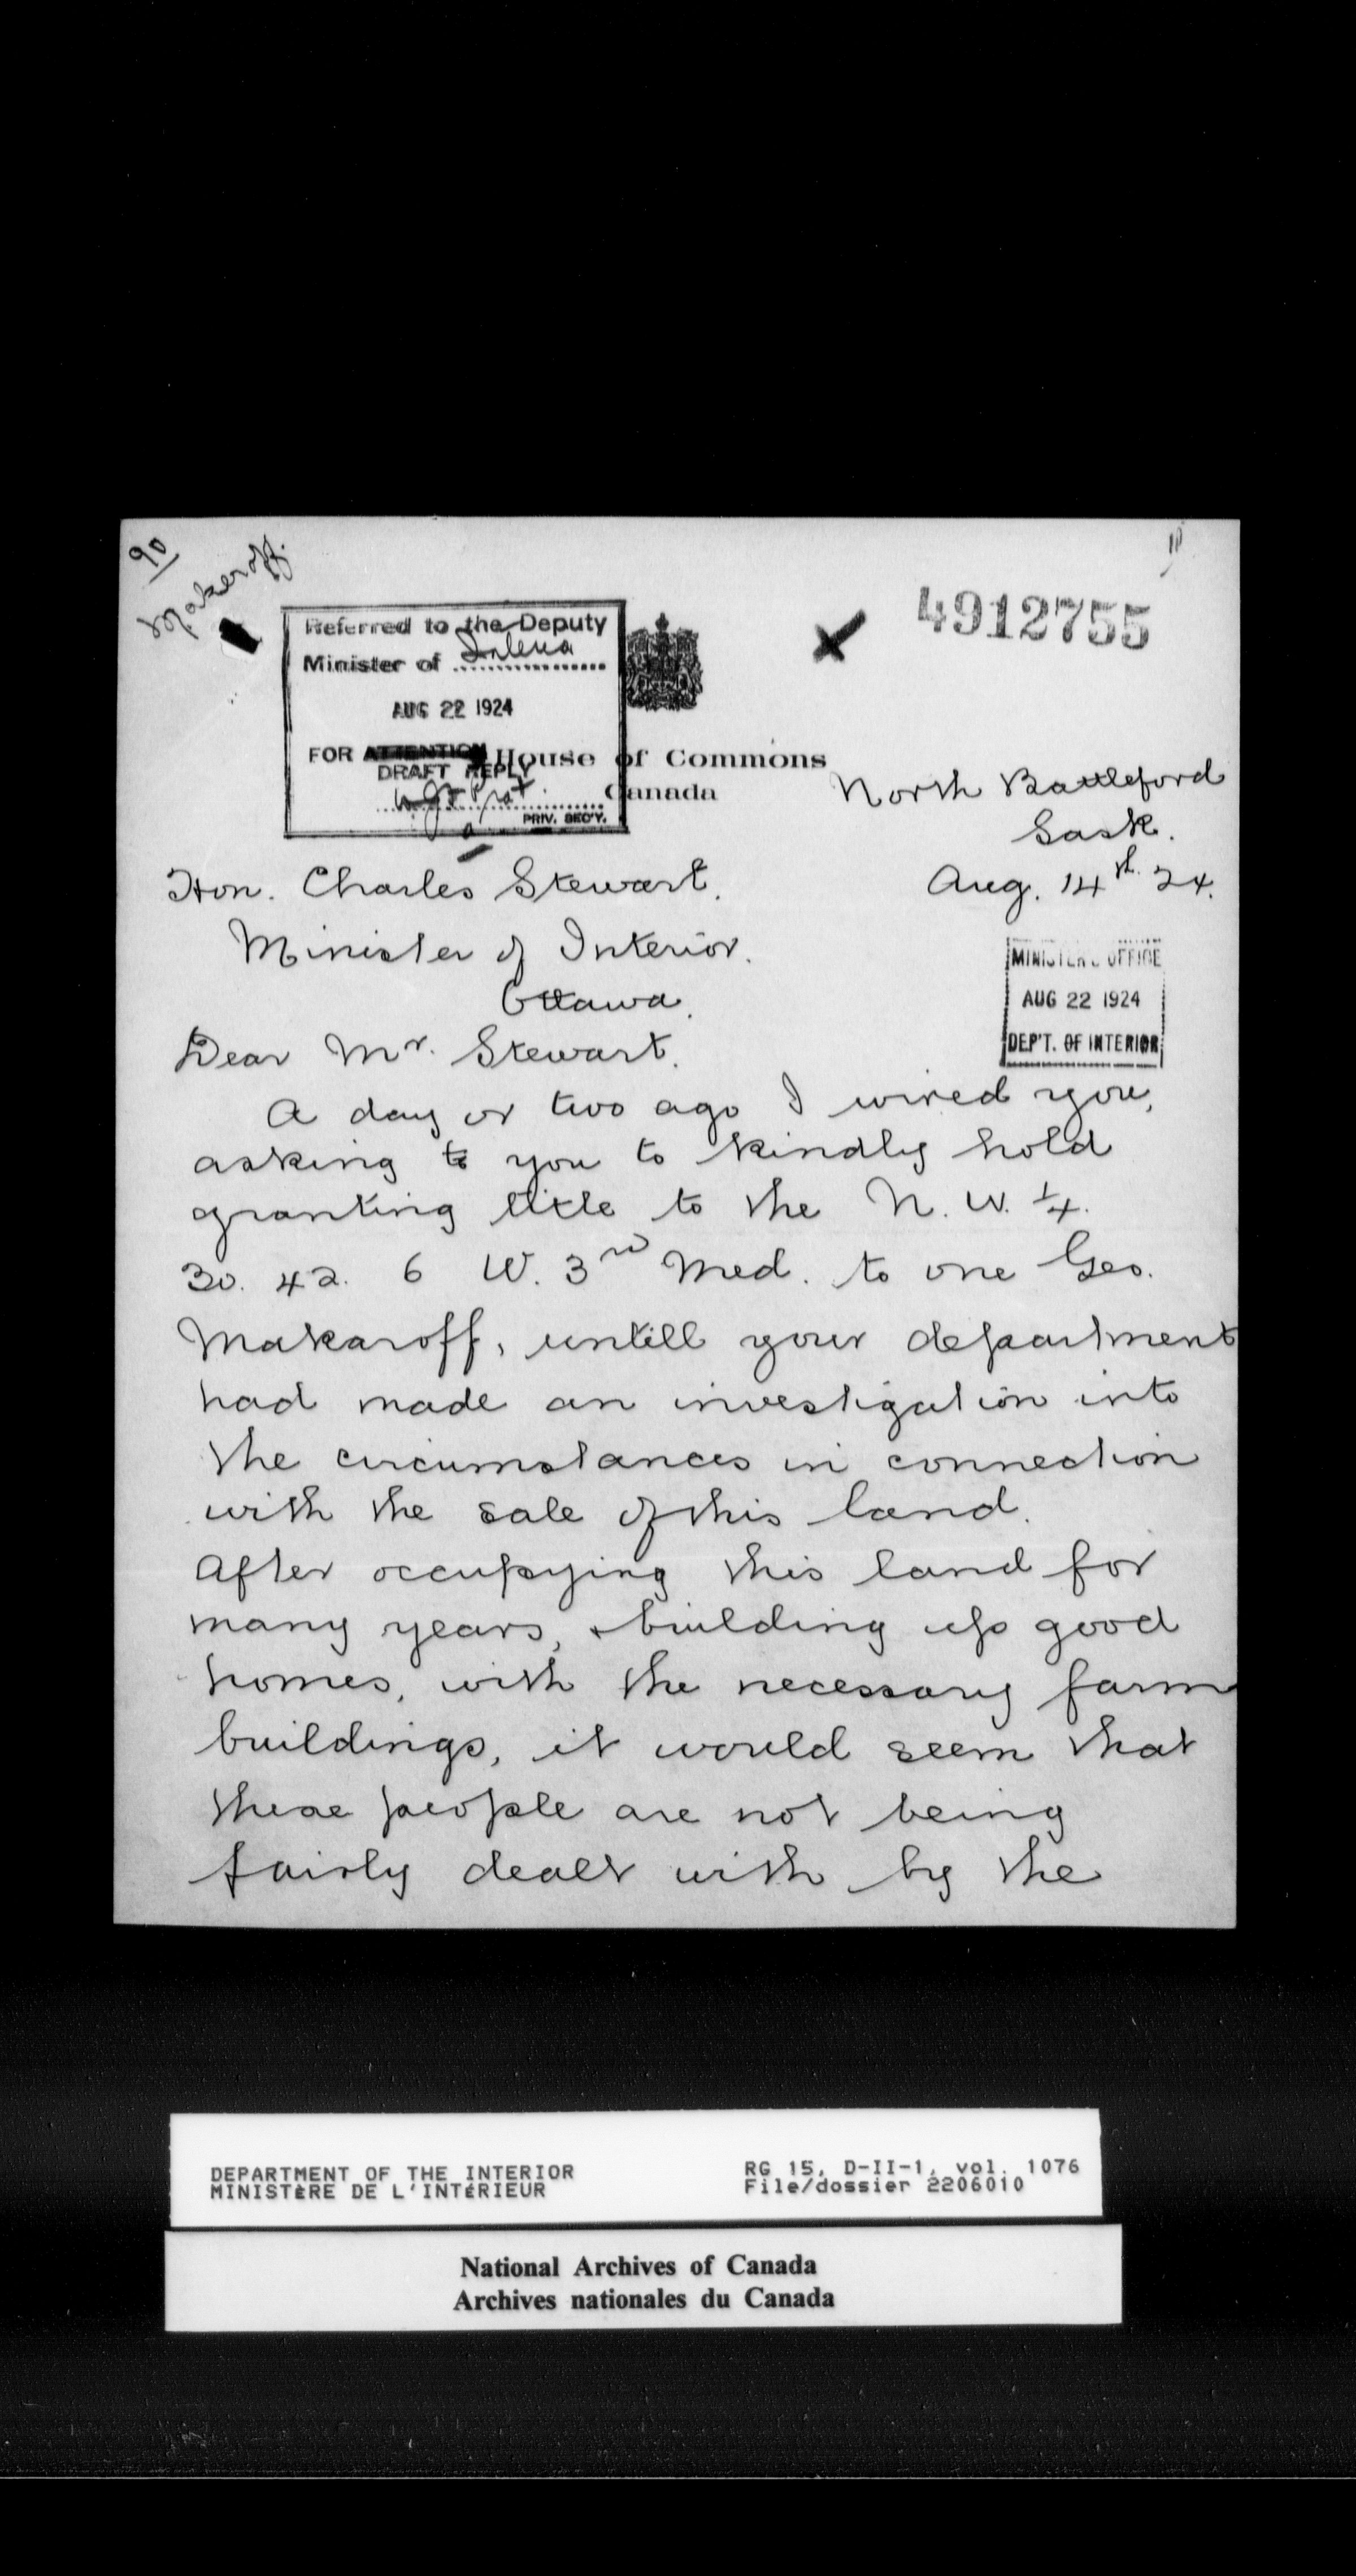 90
Makeroff.
4912755
Referred to the Deputy
Minister of
AUG 22 1924
FOR ATTENTION
DRAFT REPLY
PRIV. SEC'Y.
House of Commons
Canada
North Battleford
Sask.
Aug. 14th. 24.
Hon. Charles Stewart.
Minister of Interior.
Ottawa.
MINISTER'S OFFICE
AUG 22 1924
DEP'T. OF INTERIOR
Dear Mr. Stewart.
A day or two ago I wired you,
asking to you to kindly hold
granting title to the N. W. 1/4.
30. 42. 6 W. 3rd Med. to one Geo.
Makaroff, untill your department
had made an investigation into
the circumstances in connection
with the sale of this land.
After occupying this land for
many years, & building up good
homes, with the necessary farm
buildings, it would seem that
these people are not being
fairly dealt with by the
DEPARTMENT OF THE INTERIOR
MINISTÈRE DE L'INTÉRIEUR
RG 15, D-II-1, vol. 1076
File/dossier 2206010
National Archives of Canada
Archives nationales du Canada